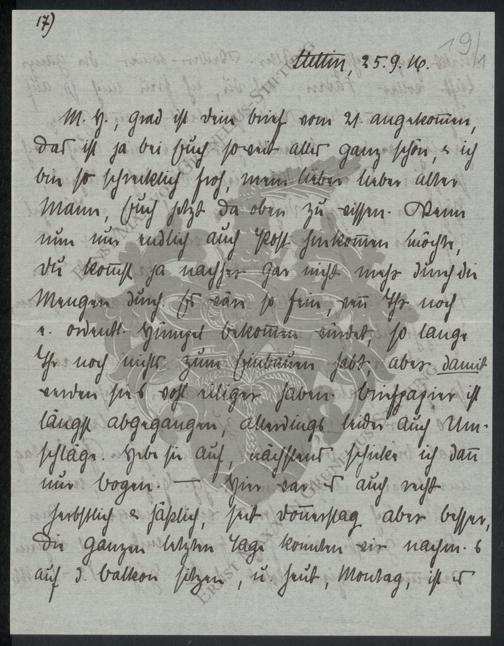 17)
19/1
Stettin, 25.9.16.
M. H., grad ist dein brief vom 21. angekommen,
das ist ja bei Euch soweit alles ganz schön, & ich
bin so schrecklich froh, mein lieber lieber alter
Mann, Euch jetzt da oben zu wissen. Wenn
nun nur endlich auch Post hinkommen möchte,
du kommst ja nachher gar nicht mehr durch die
Mengen durch. Es wär so fein, wenn Ihr noch
e. ordentl. Himpel bekommen würdet, so lange
Ihr noch nichts zum Einbauen habt, aber damit
werden sie's wohl eiliger haben. briefpapier ist
längst abgegangen, allerdings leider auch Um-
schläge. Hebe sie auf, nächstens schicke ich dann
nur bogen. — Hier war es auch recht
herbstlich & häßlich, seit donnerstag aber besser,
die ganzen letzten tage konnten wir nachm. s
auf d. balkon sitzen, u. heut, Montag, ist es